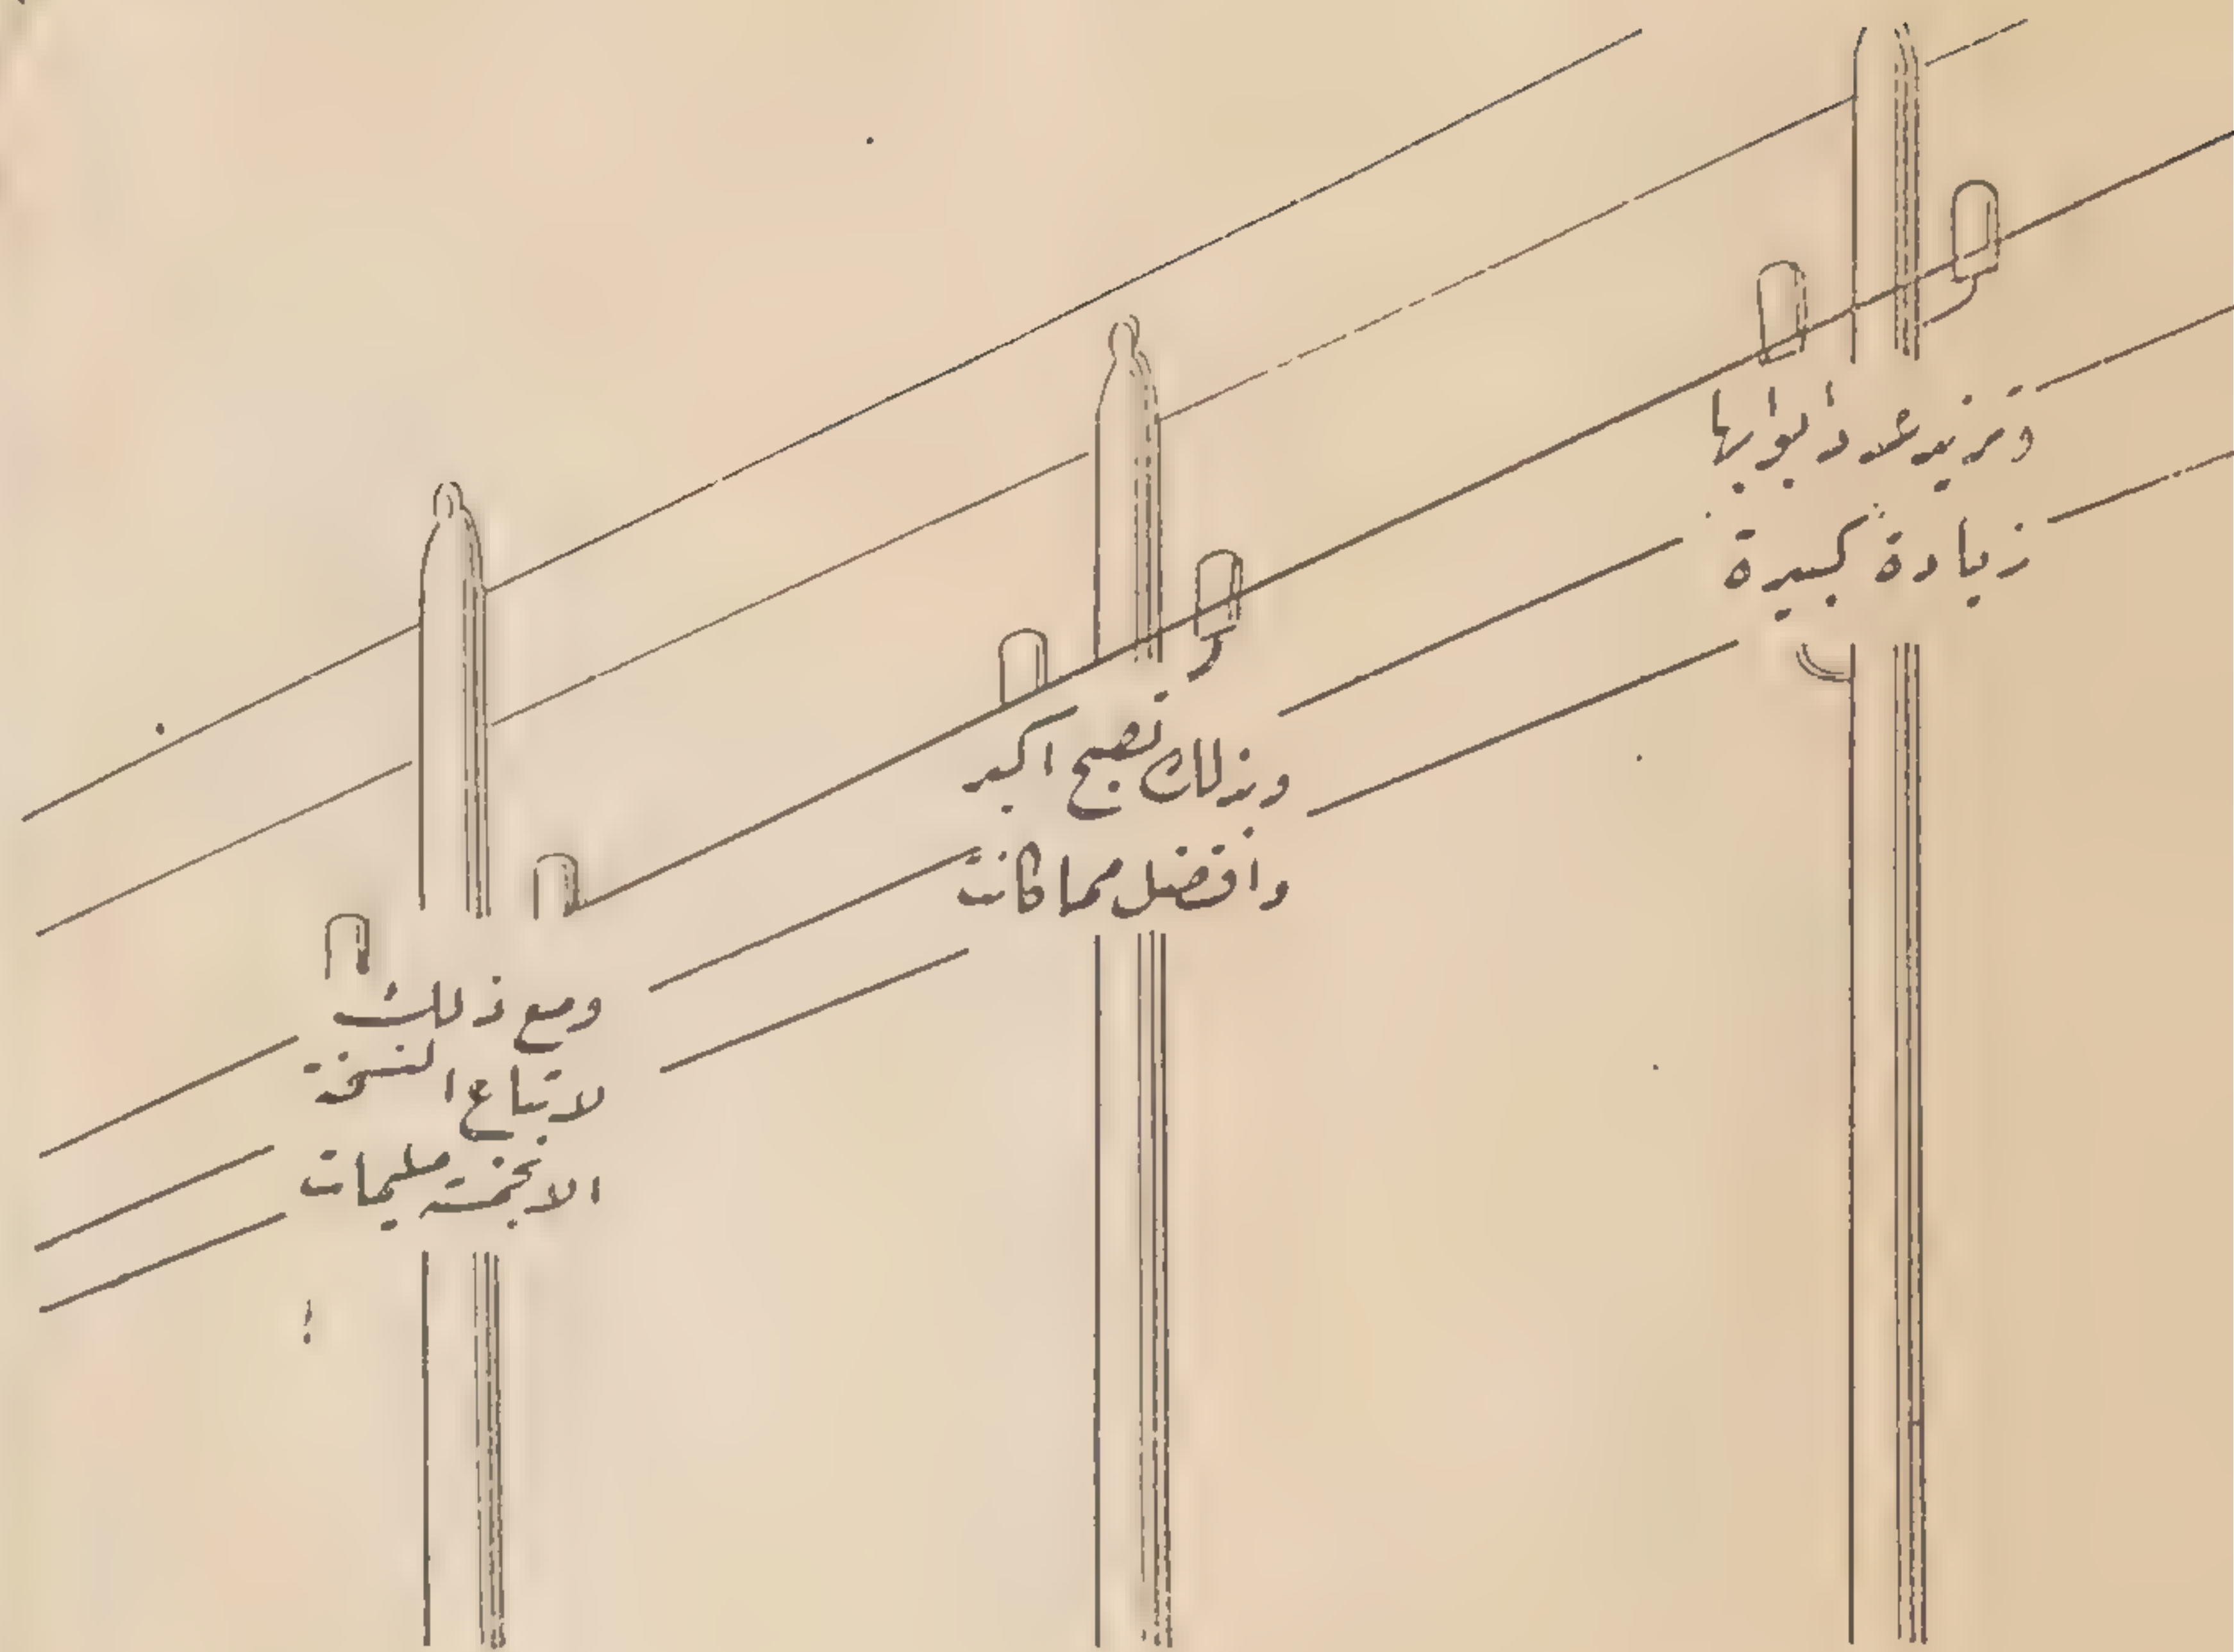 وتزيد عدد أبوابها
زيادة كبيرة
وبذلك تصبح اكبر
وافضل مما كانت
ومع ذلك
لاتباع النسخة
الا بخمسة مليمات